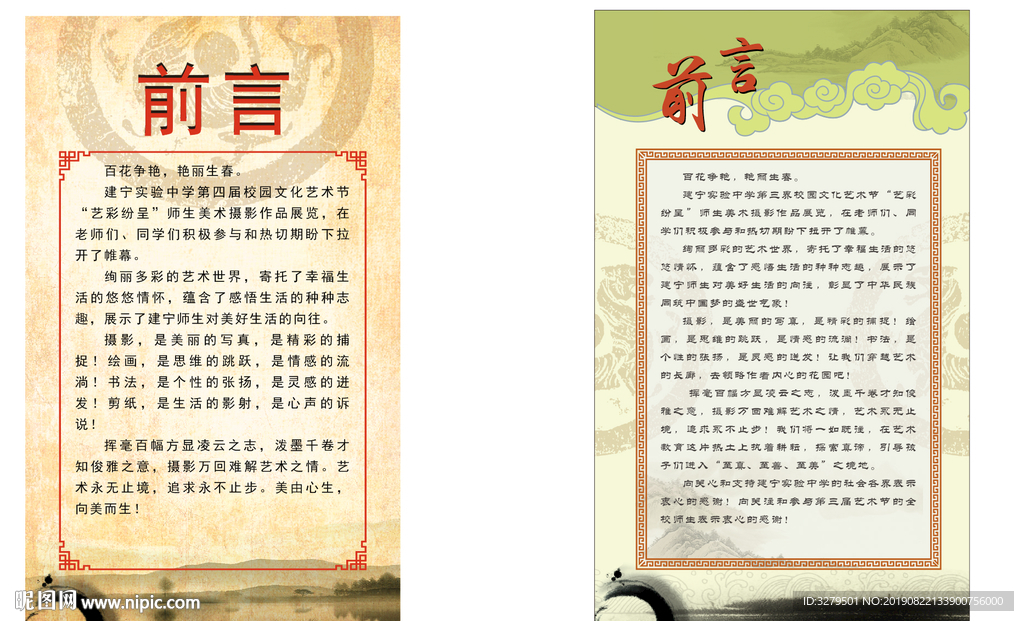 前言
百花争艳，艳丽生春。
建宁实验中学第四届校园文化艺术节
“艺彩纷呈”师生美术摄影作品展览，在
老师们、同学们积极参与和热切期盼下拉
开了帷幕。
绚丽多彩的艺术世界，寄托了幸福生
活的悠悠情怀，蕴含了感悟生活的种种志
趣，展示了建宁师生对美好生活的向往。
摄影，是美丽的写真，是精彩的捕
捉！绘画，是思维的跳跃，是情感的流
淌！书法，是个性的张扬，是灵感的迸
发！剪纸，是生活的影射，是心声的诉
说！
挥毫百幅方显凌云之志，泼墨千卷才
知俊雅之意，摄影万回难解艺术之情。艺
术永无止境，追求永不止步。美由心生，
向美而生！
前言
百花争艳，艳丽生春。
建宁实验中学第三界校园文化艺术节“艺彩
纷呈”师生美术摄影作品展览，在老师们、同
学们积极参与和热切期盼下拉开了帷幕。
绚丽多彩的艺术世界，寄托了幸福生活的悠
悠情怀，蕴含了感悟生活的种种志趣，展示了
建宁师生对美好生活的向往，彰显了中华民族
同筑中国梦的盛世气象！
摄影，是美丽的写真，是精彩的捕捉！绘
画，是思维的跳跃，是情感的流淌！书法，是
个性的张扬，是灵感的迸发！让我们穿越艺术
的长廊，去领略作者内心的花园吧！
挥毫百幅方显凌云之志，泼墨千卷才知俊
雅之意，摄影万回难解艺术之情，艺术永无止
境，追求永不止步！我们将一如既往，在艺术
教育这片热土上执着耕耘，探索真谛，引导孩
子们进入“至真、至善、至美”之境地。
向关心和支持建宁实验中学的社会各界表示
衷心的感谢！向关注和参与第三届艺术节的全
校师生表示衷心的感谢！
昵图网 www.nipic.com
ID:3279501 NO:20190822133900756000